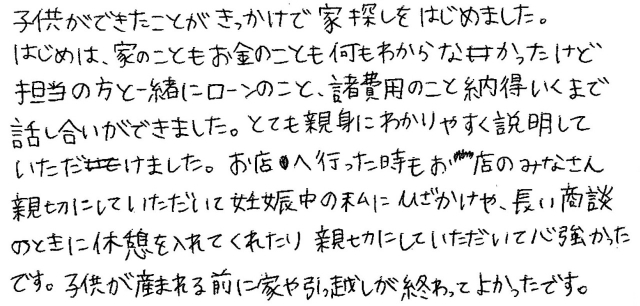 子供ができたことがきっかけで家探しをはじめました。
はじめは、家のこともお金のことも何もわからなかったけど
担当の方と一緒にローンのこと、諸費用のこと納得いくまで
話し合いができました。とても親身にわかりやすく説明して
いただけました。お店へ行った時もお店のみなさん
親切にしていただいて妊娠中の私にひざかけや、長い商談
のときに休憩を入れてくれたり親切にしていただいて心強かった
です。子供が産まれる前に家や引っ越しが終わってよかったです。